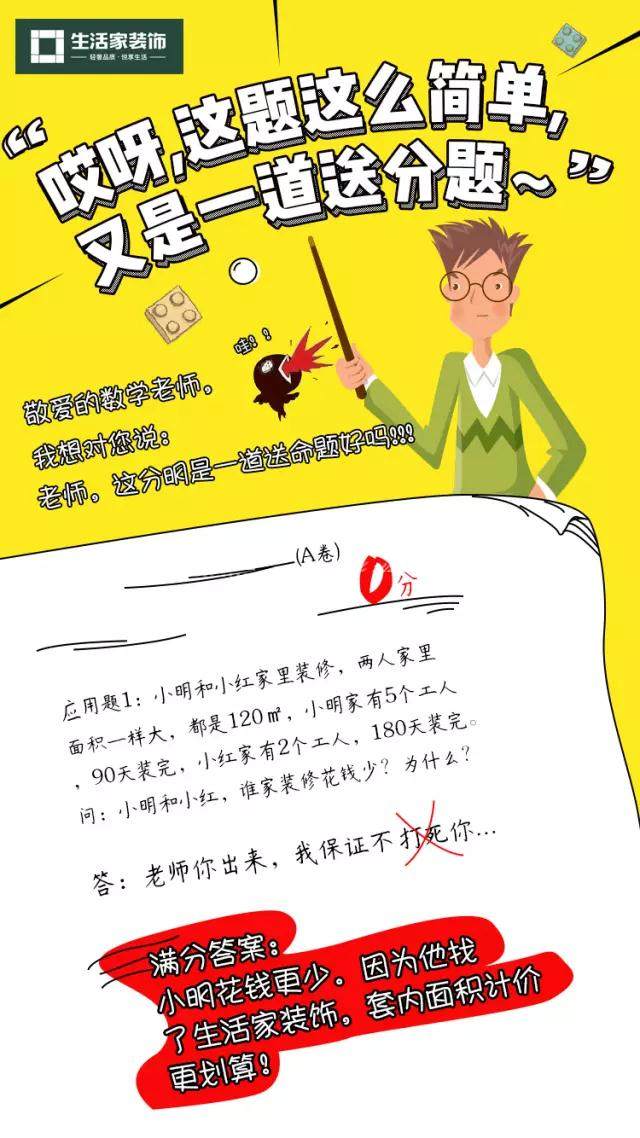 生活家装饰
轻奢品质·悦享生活
“哎呀,这题这么简单,
又是一道送分题~”
哇!!
敬爱的数学老师。
我想对您说:
老师。这分明是一道送命题好吗!!!
(A卷)
0分
应用题1:小明和小红家里装修，两人家里
面积一样大，都是120㎡，小明家有5个工人
，90天装完，小红家有2个工人，180天装完。
问:小明和小红，谁家装修花钱少？为什么？
答:老师你出来，我保证不打死你...
满分答案:
小明花钱更少。因为他找
了生活家装饰。套内面积计价
更划算!